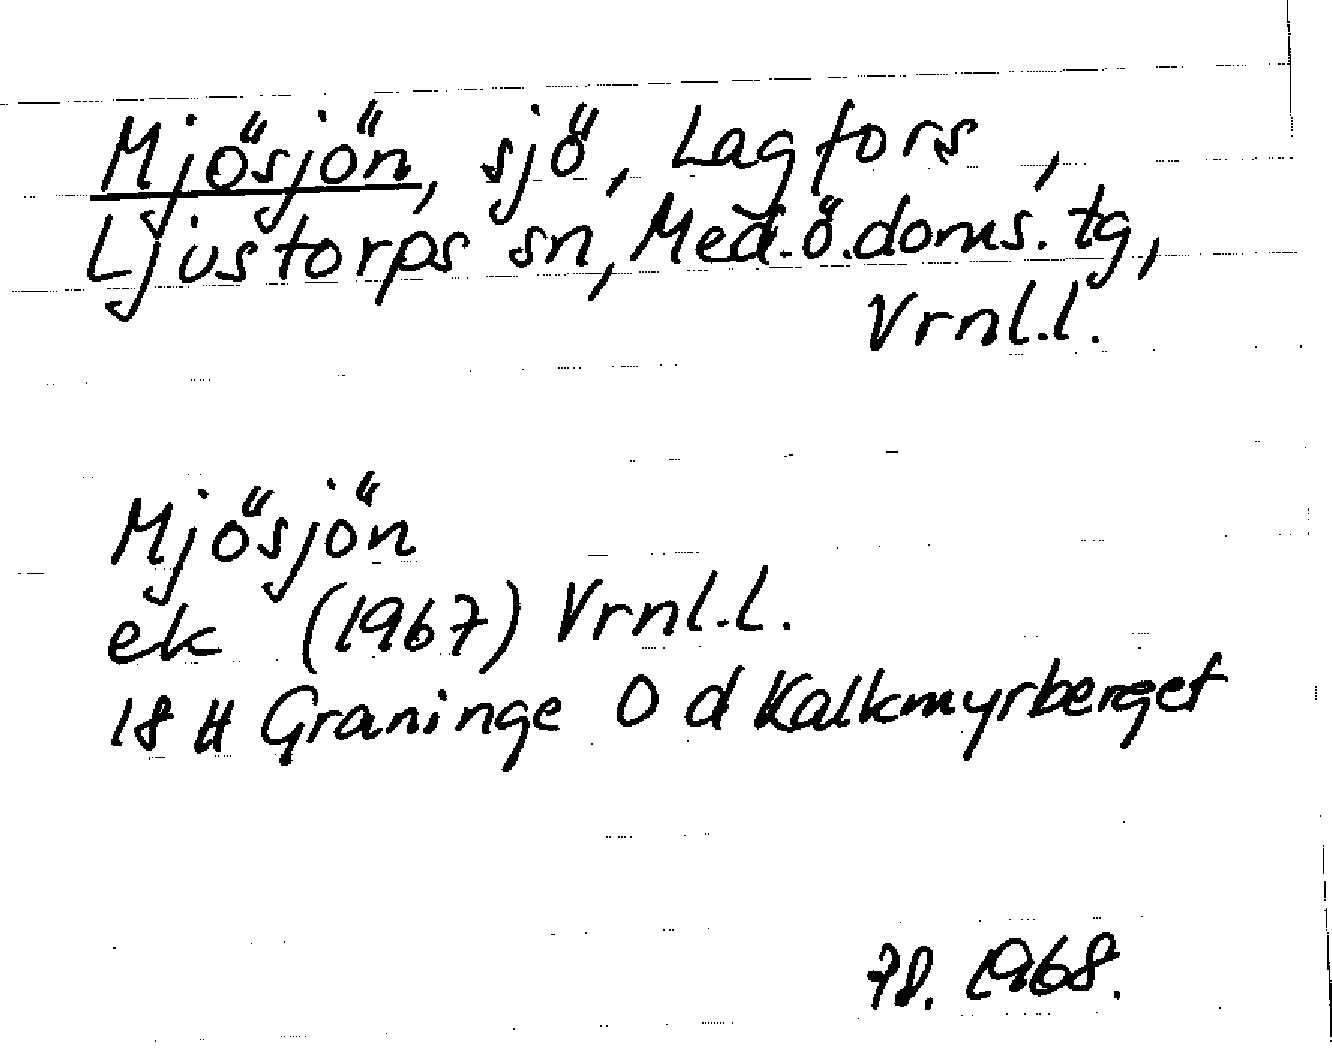 Mjösjön, sjö, Lagfors,
Ljustorps sn, Med.ö.doms.tg,
Vrnl.l.
Mjösjön
ek (1967) Vrnl.l.
18 H Graninge O d Kalkmyrberget
1968.